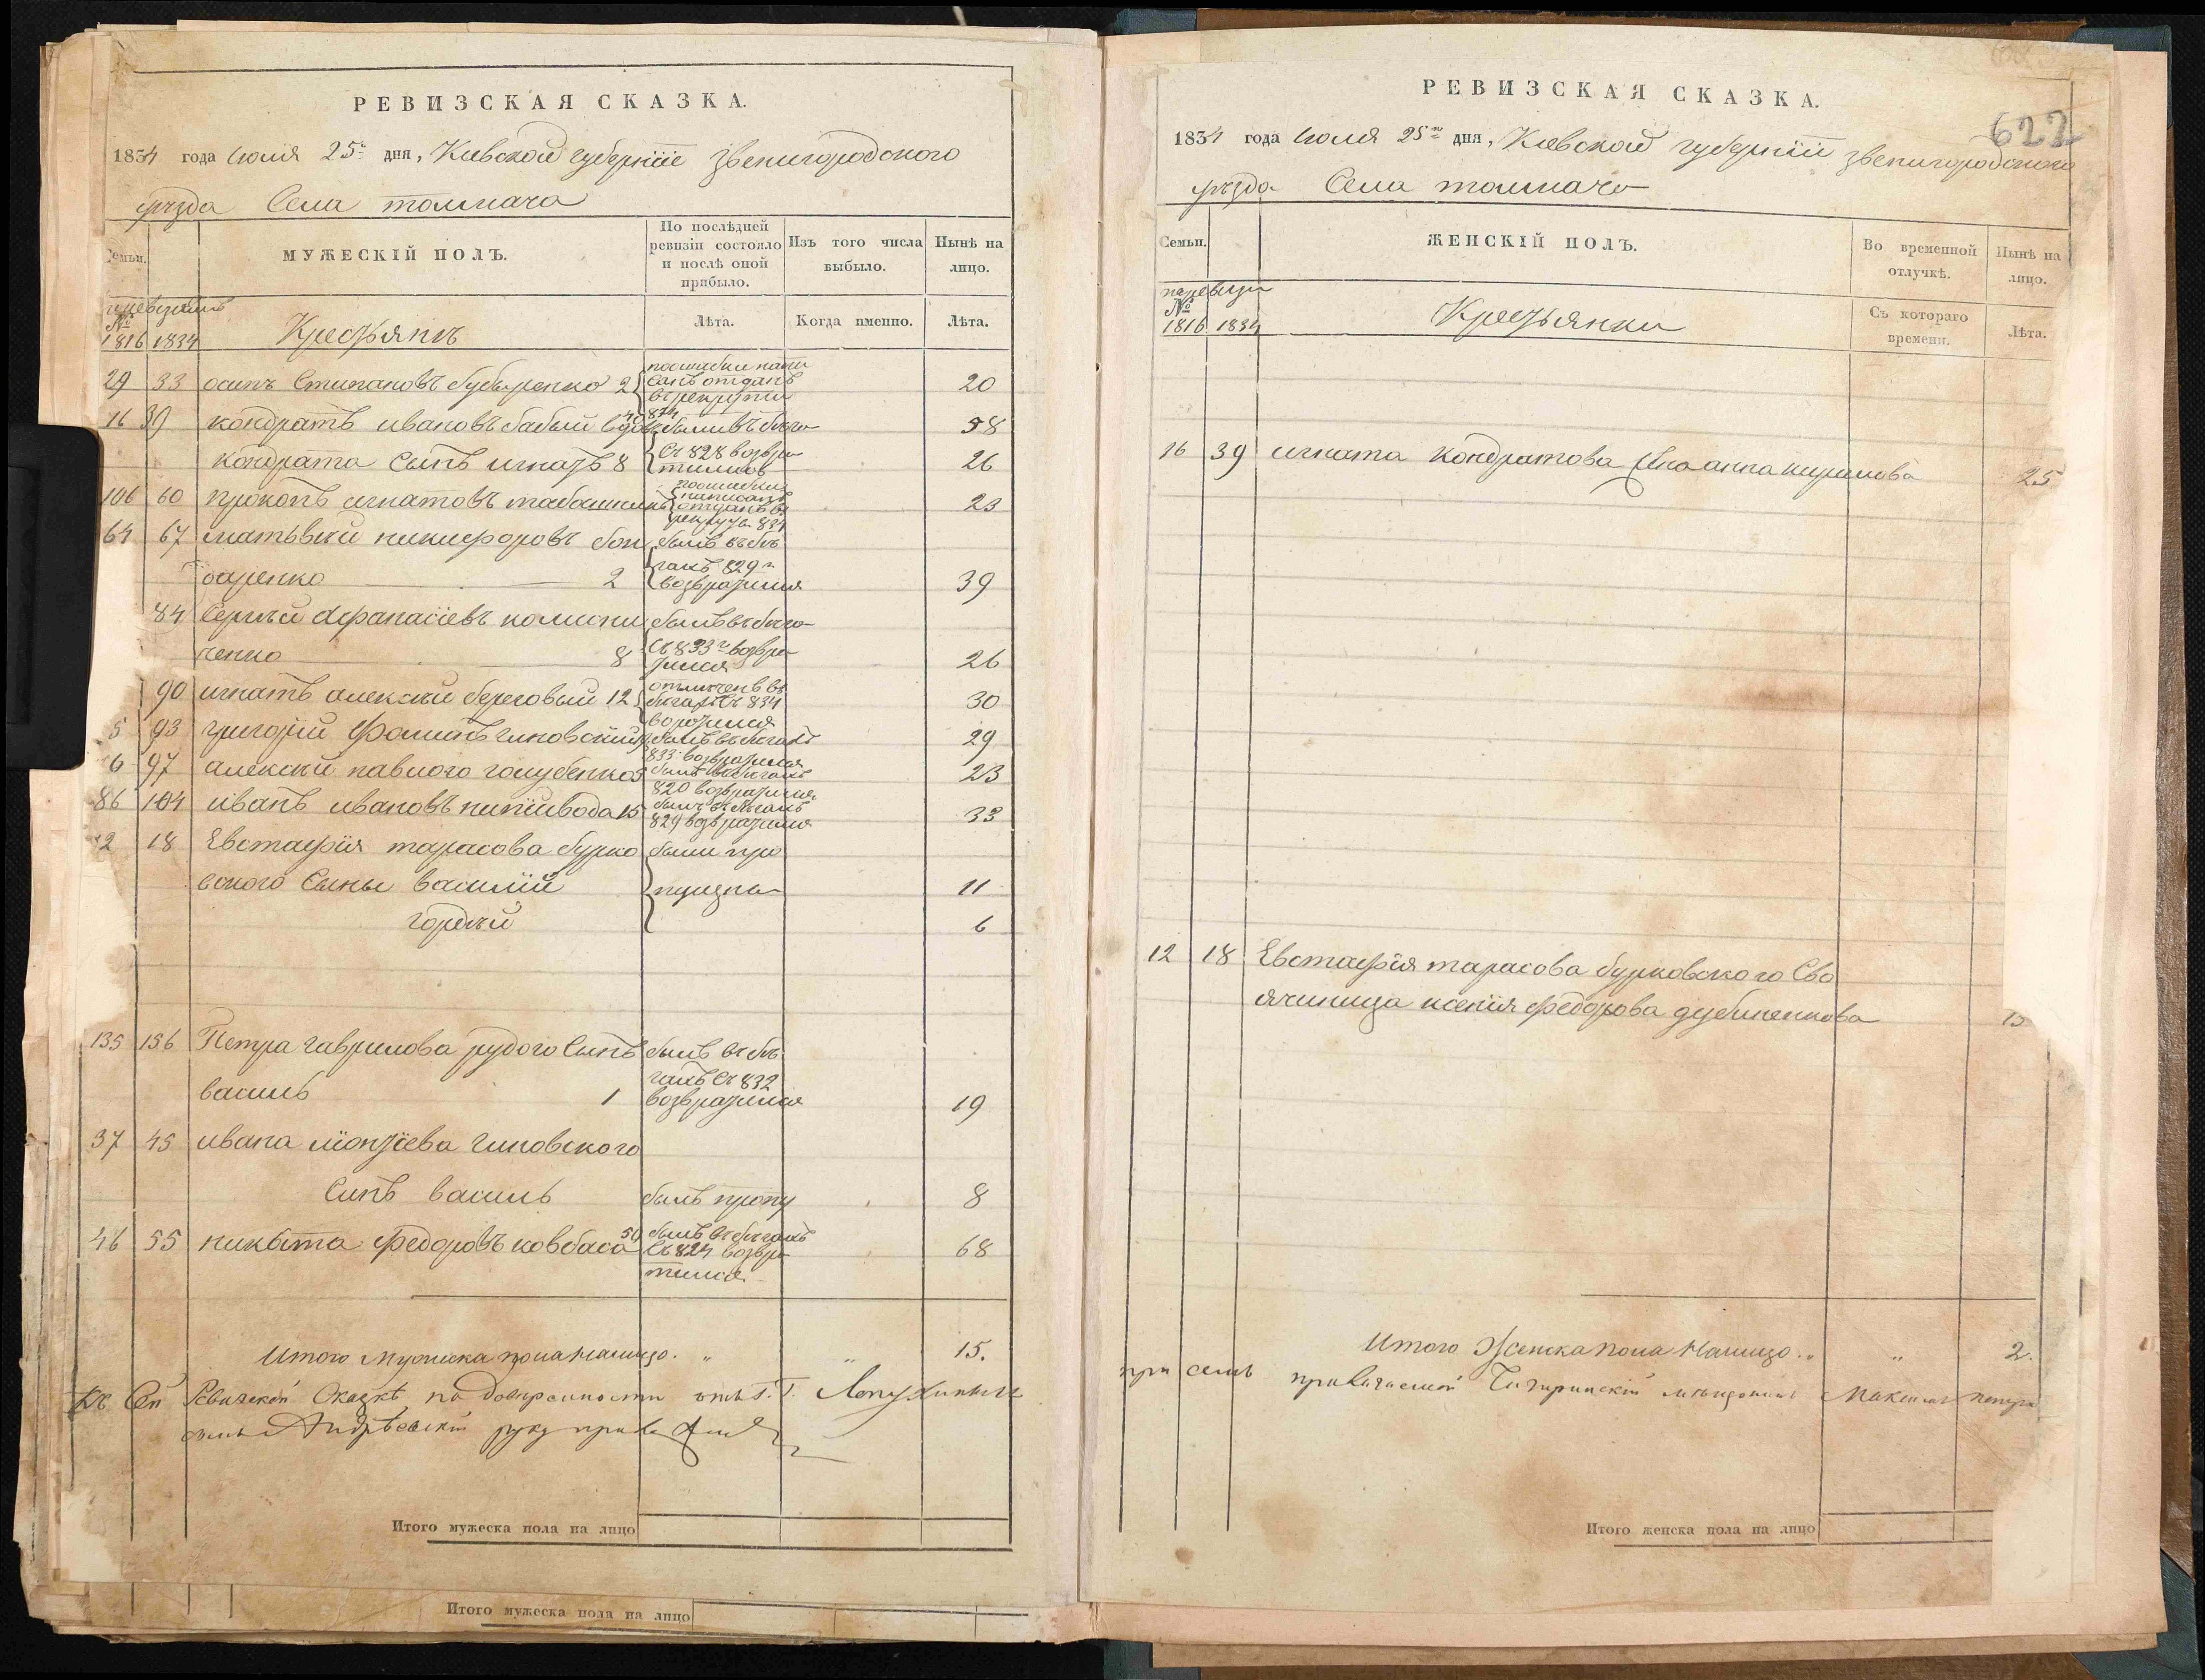 РЕВИЗСКАЯ СКАЗКА.
1834 года июля 25го дня, Киевской губернiие звенигородского
уѣзда Села толмача
Семьи.
МУЖЕСКIЙ ПОЛЪ.
По послѣдней ревизiи состояло и послѣ оной прибыло.
Изъ того числа выбыло.
Нынѣ на лицо.
№
1816 1834
Крестьянъ
Лѣта. Когда именно. Лѣта.
29 33 осипъ Стипановъ бубыренко 2 поошибки напи санъ отданъ въ рекруты 834 20
16 39 кондратъ ивановъ бабый 40 58
кондрата Сынъ игнатъ 8 Съ 828 возвра тились 26
106 60 прокопъ игнатовъ табашникъ поошибки написанъ отданъ въ рекруты 834 23
64 67 матьвей никифоровъ бон былъ въ бѣ
даренко 2 гахъ 829 г. возвратился 39
84 Сергѣй афанасiевъ количи былъ въ бѣга
ченко 8 Съ 833го возвра тился 26
90 игнатъ алексѣй береговый 12 отмѣченъ въ бѣгахъ Съ 834 воротился 30
5 93 григорiй Фоминъ гиковскiй былъ въ бѣгахъ 833 возвратился 29
6 97 алексѣй павлого голубенко 5 былъ въ бѣгахъ 820 возвратился 23
86 104 иванъ ивановъ нипiйвода 15 былъ въ бѣгахъ 829 возвратился 33
12 18 Евстафiя тарасова бурко были про
вского Сыны василiй пущены 11
гордѣй 6
135 156 Петра гаврилова рудого Сынъ былъ въ бѣ
василь 1 гахъ Съ 832 возвратился 19
37 45 ивана мойсiева гиковского
Сынъ василь былъ пропу 8
46 55 никыта федоровъ ковбаса 50 былъ въ бѣгахъ Съ 824 возвра тился 68
Итого Мужиска пола налицо. „ „ 15.
Къ Сей Ревизской Сказкѣ по довѣренности отъ Г. Г. Лопухиныхъ
Андрѣевскiй руку приложилъ
Итого мужеска пола на лицо
Итого мужеска пола на лицо
РЕВИЗСКАЯ СКАЗКА.
622
1834 года июля 25го дня, Киевской губернiи звенигородского
уѣзда Села толмача
Семьи.
ЖЕНСКIЙ ПОЛЪ.
Во временной отлучкѣ.
Нынѣ на лицо.
№
1816 1834
Крестьянки
Съ котораго времени. Лѣта.
16 39 игната кондратова жена анна кирилова 25
12 18 Евстафiя тарасова бурковского Сво
ячиница ксенiя федорова дубиненкова 15
Итого Женска пола Налицо. „ „ 2.
при семъ Чигиринскiй мѣщанинъ Максимъ петро
Итого женска пола на лицо